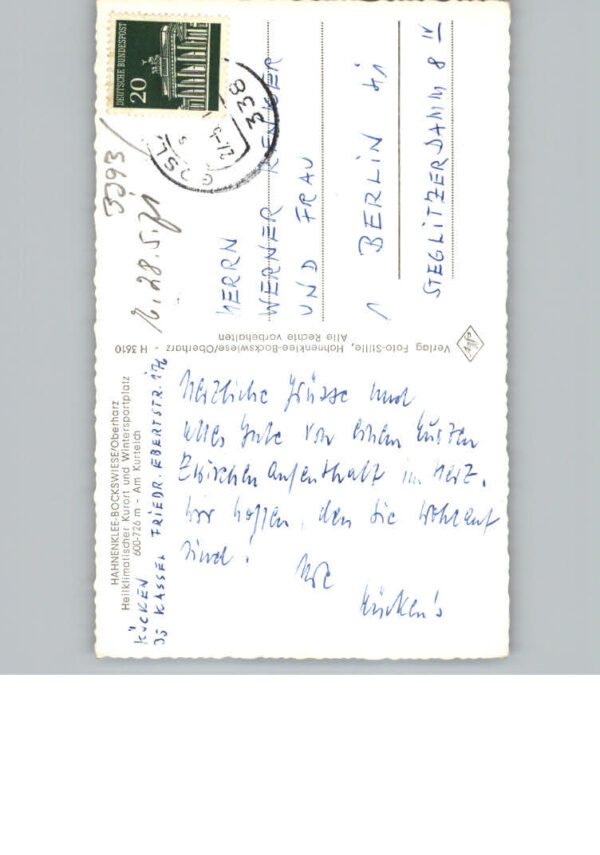 HAHNENKLEE-BOCKSWIESE/Oberharz
Heilklimatischer Kurort und Wintersportplatz
600-726 m - Am Kurteich
KÜCKEN
35 KASSEL FRIEDR. EBERTSTR. 176
Herzliche Grüsse und
alles Gute von einem kurzen
Zwischenaufenthalt im Harz.
Wir hoffen, dass Sie wohlauf
sind!
Ihre
Kücken's
Verlag Foto-Stille, Hahnenklee-Bockswiese/Oberharz - H 3610
Alle Rechte vorbehalten
3393
28.5.71
DEUTSCHE BUNDESPOST
20
338
GOSL
HERRN
WERNER
UND FRAU
1 BERLIN 41
STEGLITZERDAMM 8 IV